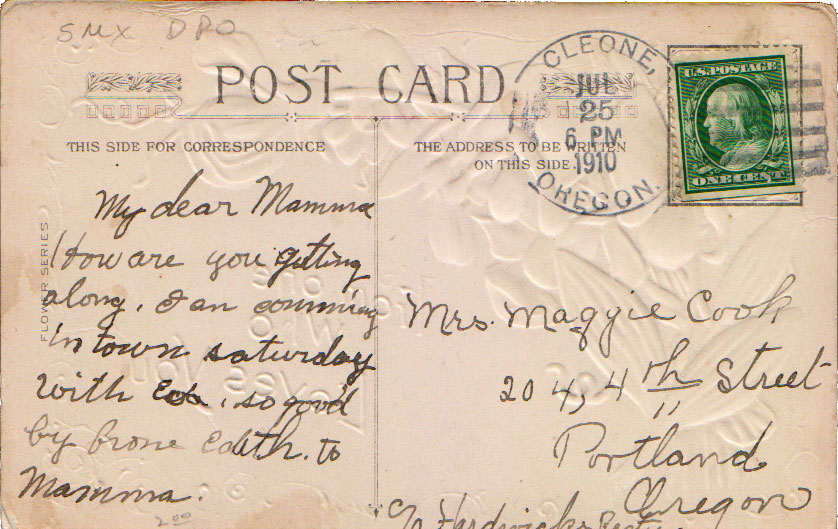 SMX DPO
POST CARD
CLEONE,
JUL
25
6 PM
1910
OREGON.
U.S. POSTAGE
ONE CENT
THIS SIDE FOR CORRESPONDENCE
THE ADDRESS TO BE WRITTEN
ON THIS SIDE.
FLOWER SERIES
My dear Mamma
How are you getting
along. I an comming
in town saturday
with so good
by frone Edith. to
Mamma.
2 00
Mrs. Maggie Cook
204, 4th Street
Portland
Oregon
c/o Hardwicks